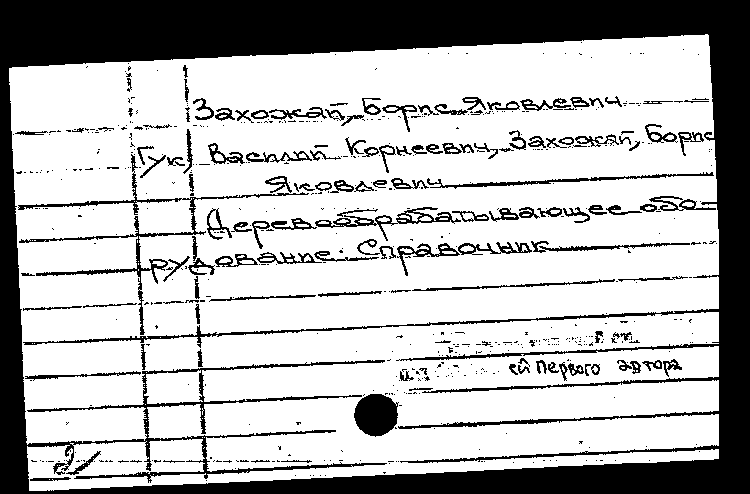 Захожай, Борис Яковлевич
Гук, Василий Корнеевич, Захожай, Борис
Яковлевич
Деревообрабатывающее обо-
рудование. Справочник
ей первого автора
2